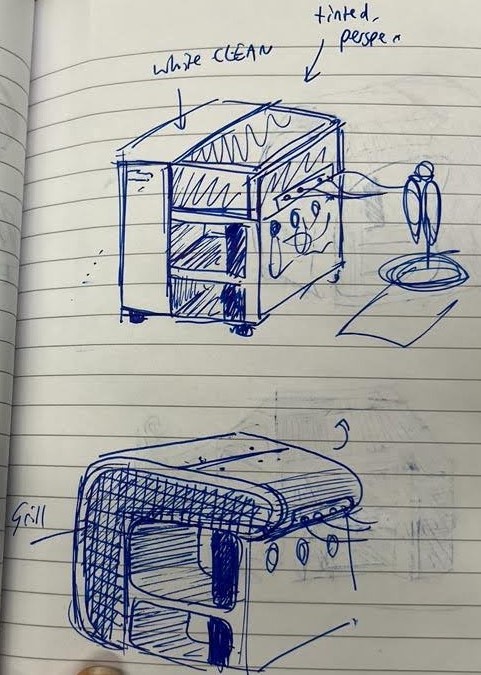 tinted.
perspex
white CLEAN
Grill